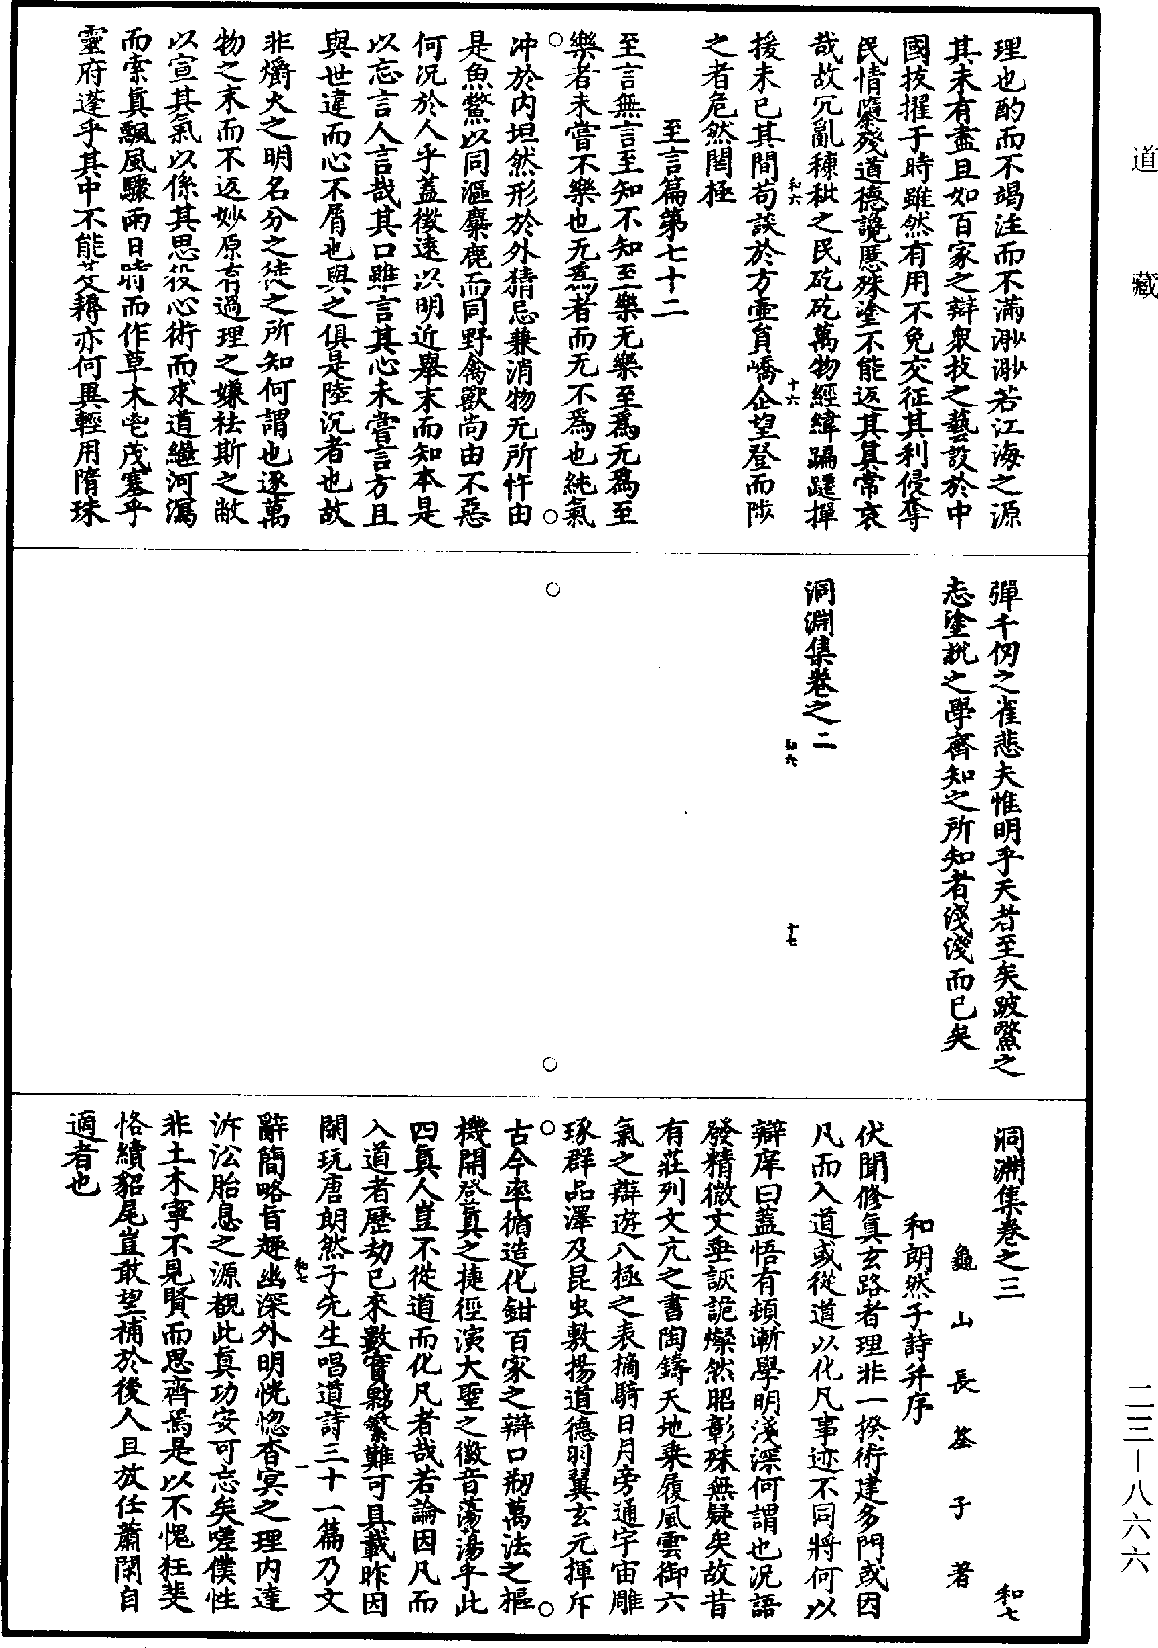 道藏
理也酌而不竭注而不滿渺渺若江海之源
其未有盡且如百家之辯衆技之藝設於中
國拔擢于時雖然有用不免交征其利侵奪
民情隳殘道德讒慝殊塗不能返其真常哀
哉故冗亂穅秕之民矻矻萬物經緯蹁躚撣
援未已其間苟談於方壺員嶠企望登而陟
之者危然閎極
至言篇第七十二
至言無言至知不知至樂无樂至爲无爲至
樂者未嘗不樂也无爲者而无不爲也純氣
冲於内坦然形於外猜忌兼消物无所忤由
是魚鱉以同漚麋鹿而同野禽獸尚由不惡
何況於人乎蓋徵遠以明近舉末而知本是
以忘言人言哉其口雖言其心未嘗言方且
與世違而心不屑也與之俱是陸沉者也故
非爝火之明名分之徒之所知何謂也逐萬
物之末而不返妙原有過理之嫌祛斯之敝
以宣其氣以係其思役心術而求道繼河瀉
而索真飄風驟雨日時而作草木壱茂塞乎
靈府蓬乎其中不能芟耨亦何異輕用隋珠
和六
十六
彈千仞之雀悲夫惟明乎天者至矣跛鱉之
志塗枕之學齊知之所知者淺淺而已矣
洞淵集卷之二
和六
十七
洞淵集卷之三
和七
龜山長筌子著
和朗然子詩并序
伏聞修真玄路者理非一揆術建多門或因
凡而入道或從道以化凡事迹不同將何以
辯庠曰蓋悟有頓漸學明淺深何謂也況語
發精微文垂詼詭燦然昭彰殊無疑矣故昔
有莊列文亢之書陶鑄天地乘履風雲御六
氣之辯遊八極之表摘騎日月旁通宇宙雕
琢群品澤及昆虫敷揚道德羽翼玄元揮斥
古今率循造化鉗百家之辯口剏萬法之樞
機開登真之捷徑演大聖之徽音蕩蕩乎此
四真人豈不從道而化凡者哉若論因凡而
入道者歷劫已來數實夥繁難可具載昨因
閑玩唐朗然子先生唱道詩三十一篇乃文
辭簡略旨趣幽深外明恍惚杳冥之理内達
泝㳂胎息之源覩此真功安可忘矣嗟僕性
非土木寧不見賢而思齊焉是以不愧狂斐
恪續貂尾豈敢望補於後人且放任蕭閑自
適者也
和七
一
二三—八六六